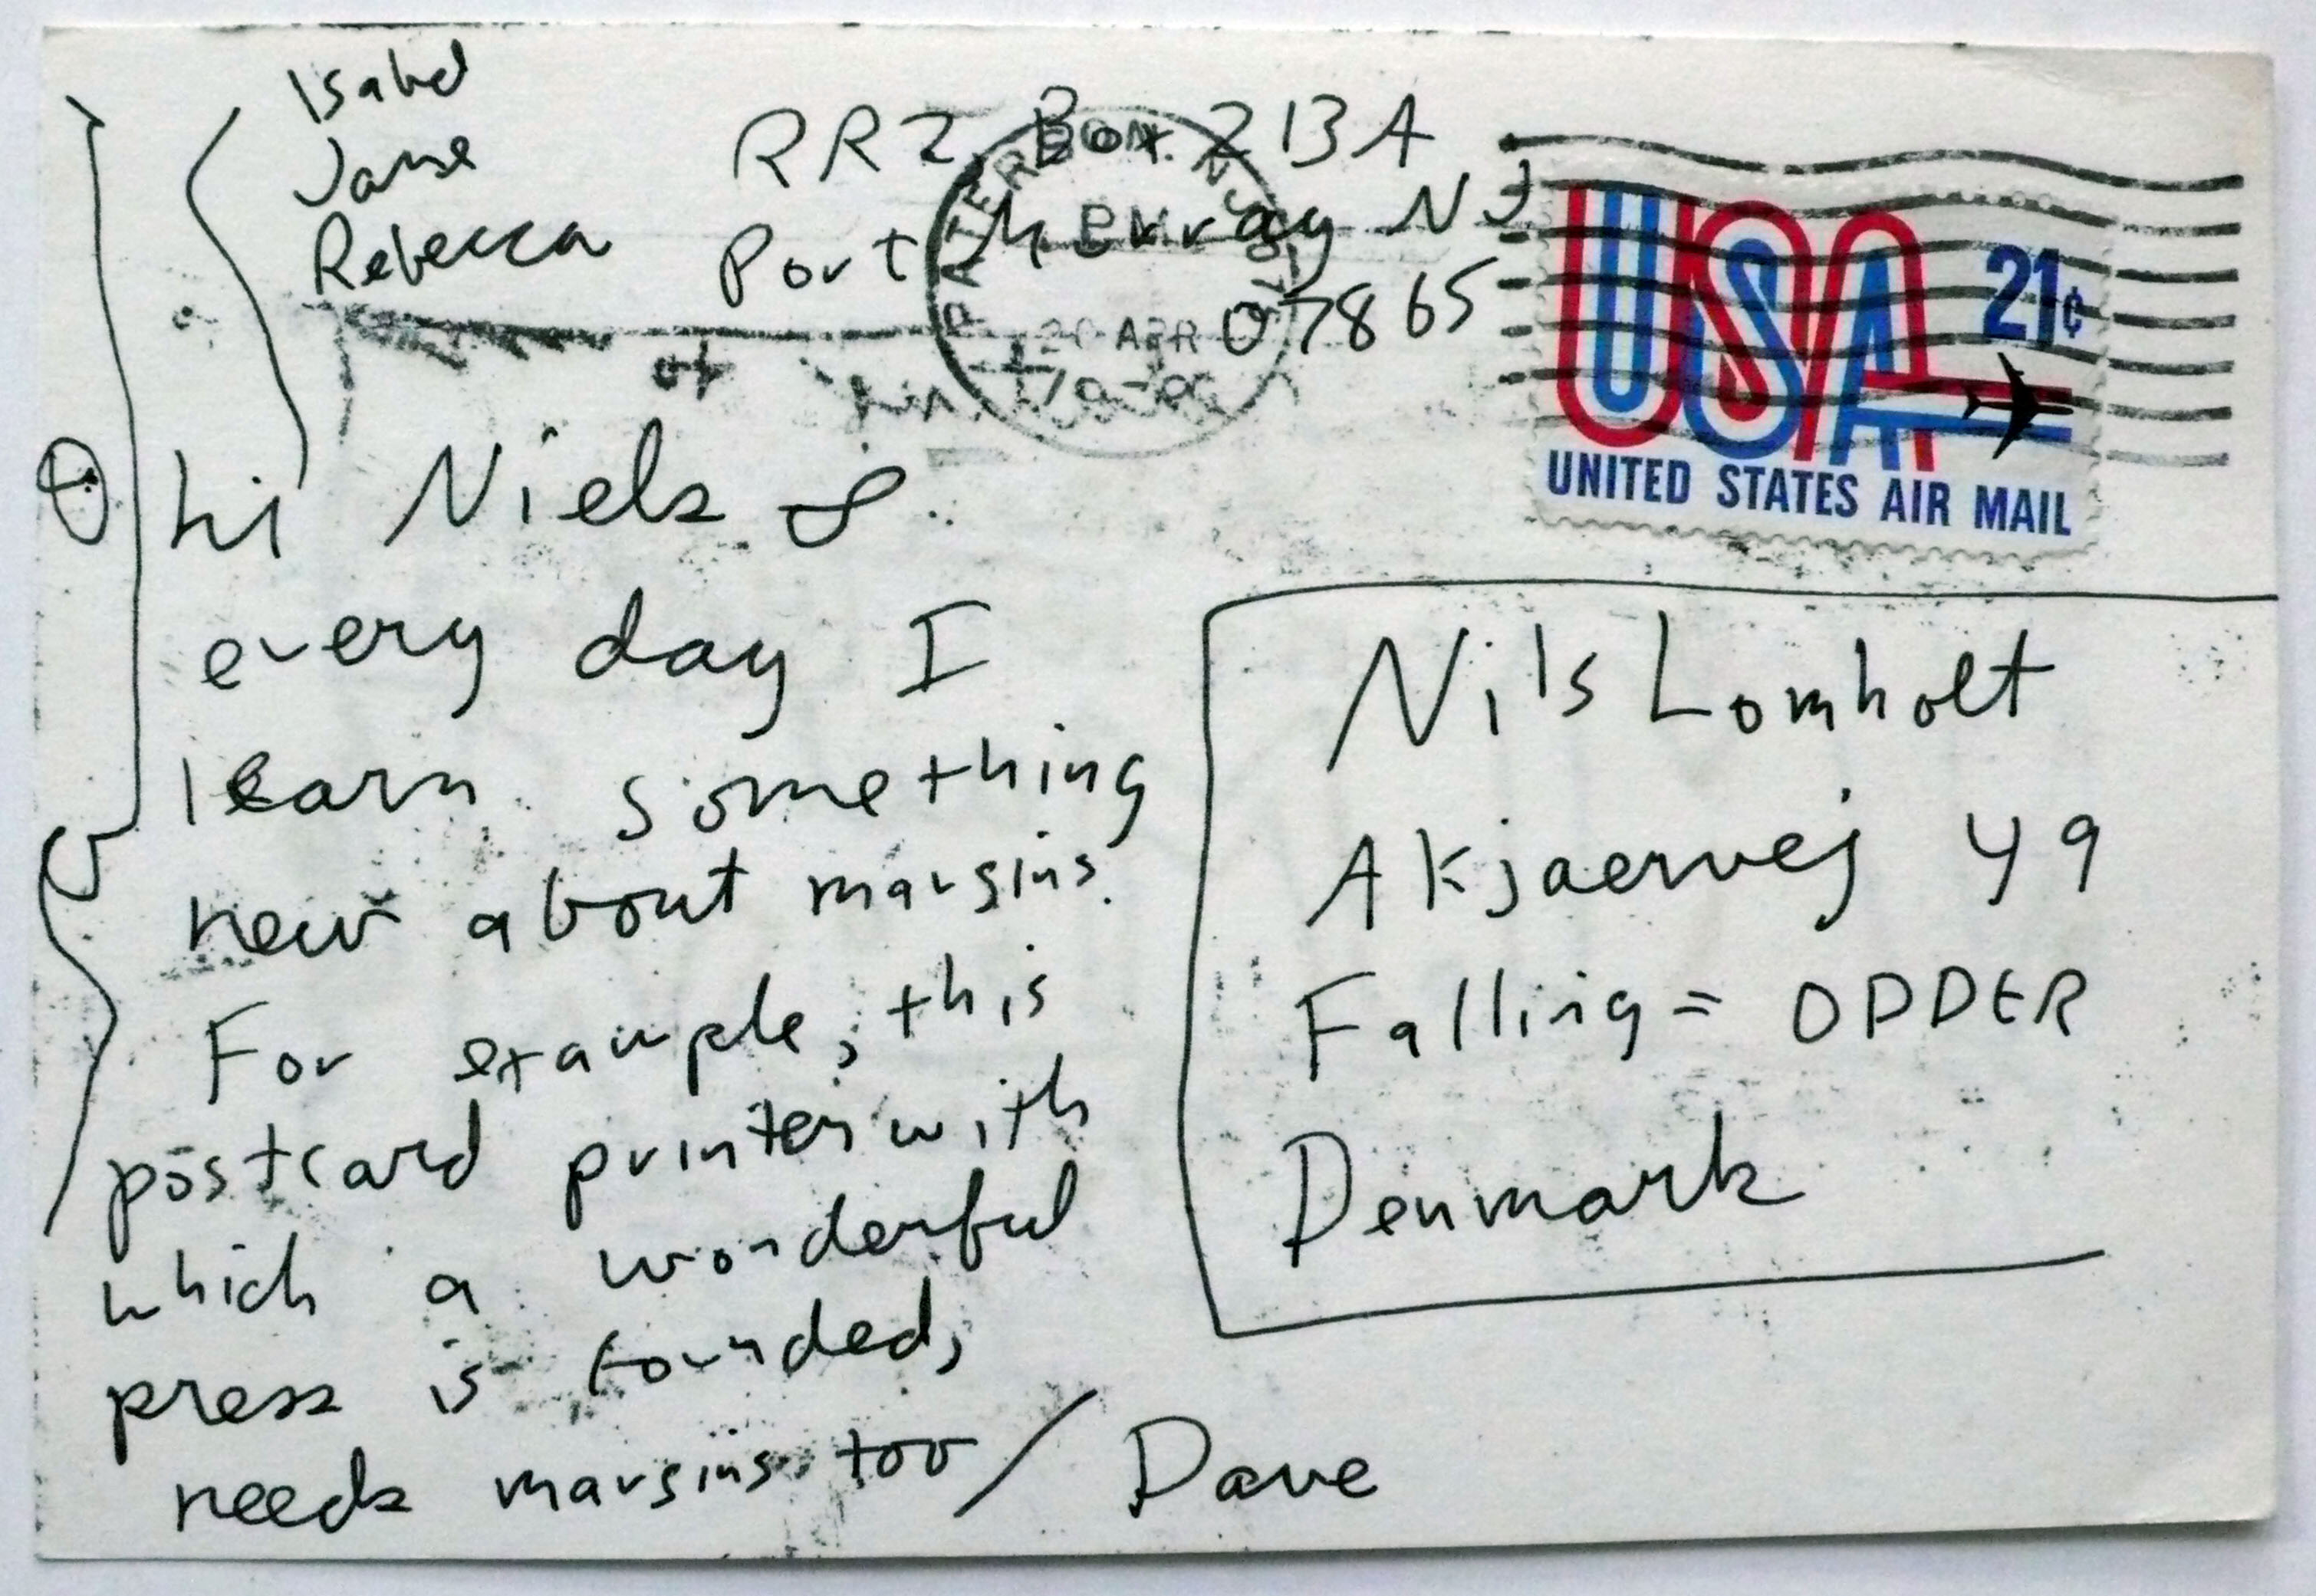 Isabel
Jane
Rebecca
RR2, Box 213A
Port Murray NJ
07865
PATERSON, NJ
PM
APR
USA 21¢
UNITED STATES AIR MAIL
hi Niels &
every day I
learn something
new about margins.
For example, this
postcard printer with
which a wonderful
press is founded,
needs margins too / Dave
Nils Lomholt
Akjaervej 49
Falling = ODDER
Denmark